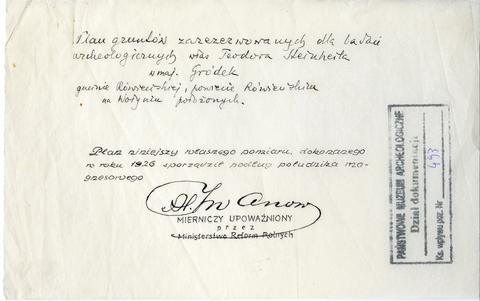 Plan gruntów zarezerwowanych dla badań
archeologicznych włas Teodora Steinheila
w maj. Gródek
gminie Rówieńskiej, powiecie Rówieńskim
na Wołyniu położonych.
Plan niniejszy własnego pomiaru, dokonanego
w roku 1926 sporządził podług południka ma-
gnesowego
Al. Iwanow
MIERNICZY UPOWAŻNIONY
przez
Ministerstwo Reform Rolnych
PAŃSTWOWE MUZEUM ARCHEOLOGICZNE
Dział dokumentacji
Ks. wpływu poz. Nr 493